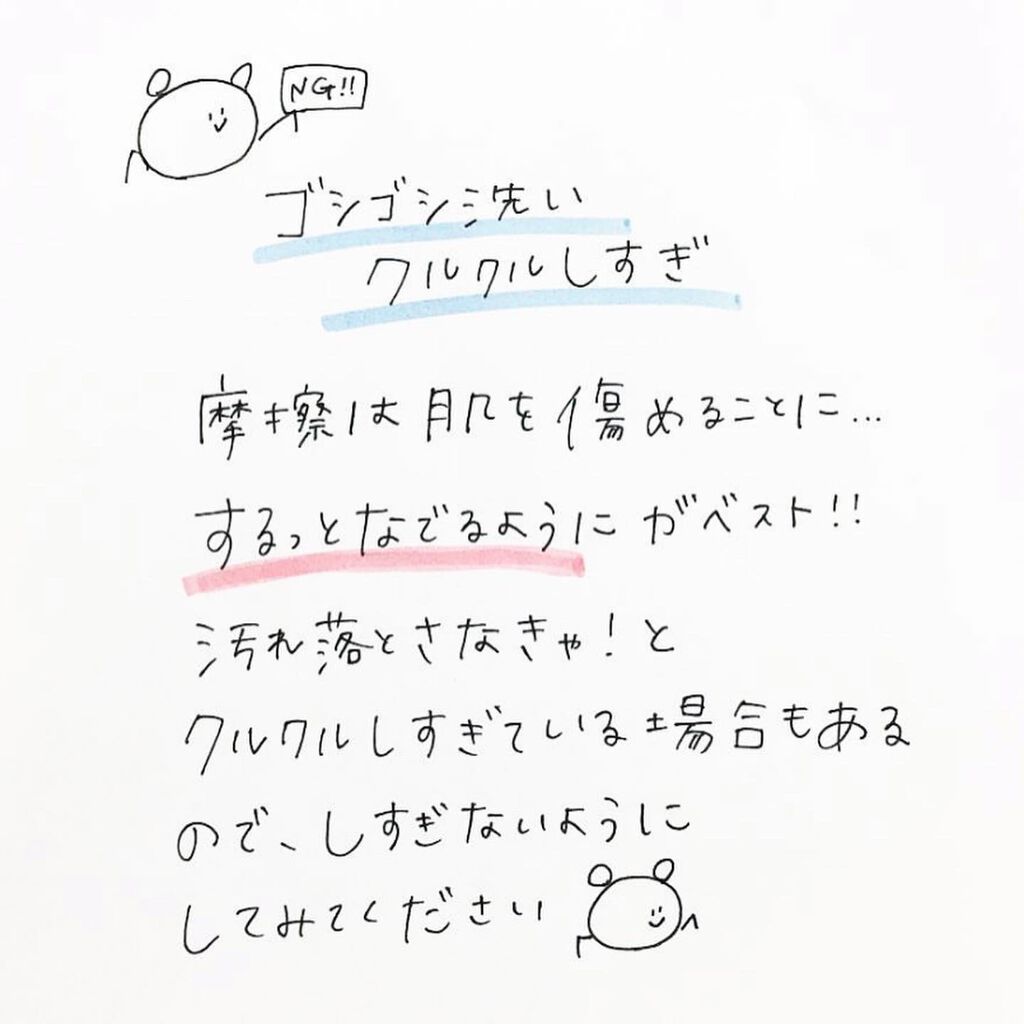 NG!!
ゴシゴシ洗い
クルクルしすぎ
摩擦は肌を傷めることに...
するっとなでるようにがベスト!!
汚れ落とさなきゃ!と
クルクルしすぎている場合もある
ので、しすぎないように
してみてください